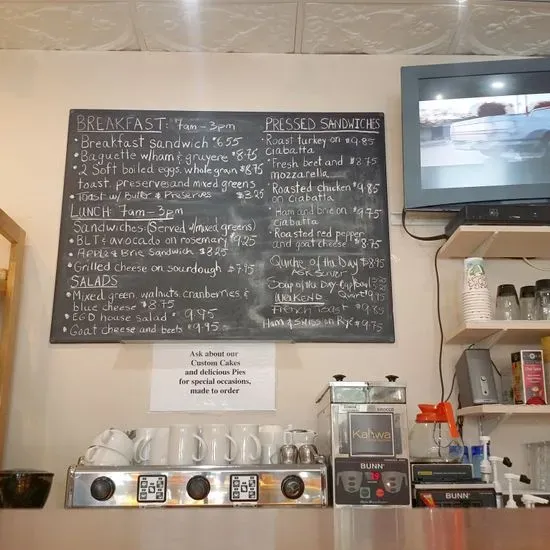 BREAKFAST: 7am - 3pm
• Breakfast sandwich $6.55
• Baguette w/ham & gruyere $8.75
• 2 Soft boiled eggs, whole grain $8.75
toast, preserves and mixed greens
• Toast w/ Butter & Preserves $3.25
LUNCH: 7am - 3pm
Sandwiches: (Served w/mixed greens)
• BLT & avocado on rosemary $9.25
• Apple & Brie Sandwich $8.25
• Grilled cheese on sourdough $7.95
SALADS
• Mixed green, walnuts, cranberries, &
blue cheese $8.75
• EGD house salad $9.95
• Goat cheese and beets $9.95
PRESSED SANDWICHES
• Roast turkey on $9.85
ciabatta
• Fresh beet and $8.75
mozzarella
• Roasted chicken $9.85
on ciabatta
• Ham and brie on $9.75
ciabatta
• Roasted red pepper
and goat cheese $8.75
Quiche of the Day $8.95
Ask Server
Soup of the Day - Cup Bowl
Quart
WEEKEND
French Toast $9.85
Ham & Swiss on Rye $9.75
Ask about our
Custom Cakes
and delicious Pies
for special occasions,
made to order
Kahwa
BUNN
BUNN